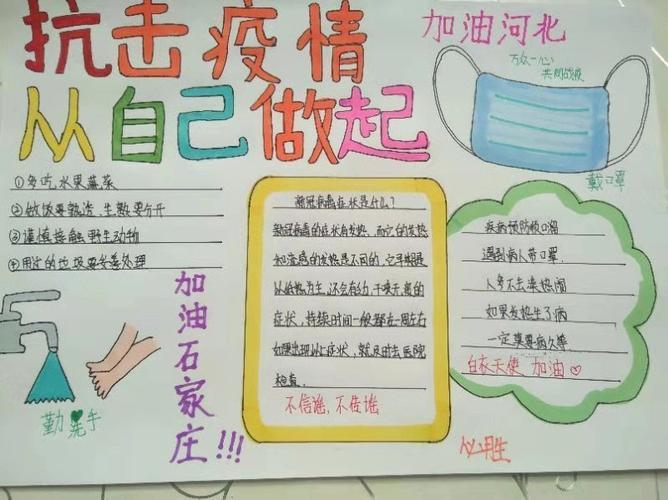 抗击疫情
从自己做起
加油河北
万众一心
共同战疫
戴口罩
①多吃水果蔬菜
②做饭要熟透，生熟要分开
③谨慎接触野生动物
④用过的垃圾要妥善处理
加油石家庄!!!
勤洗手
新冠病毒症状是什么?
新冠病毒的症状有发热，而它的发热
和流感的发热是不同的，它早期是
以低热为主，还会有乏力，干咳,
症状，持续时间一般都在一周左右
如果出现以上症状，就及时去医院
检查.
不信谣,不传谣
疾病预防顺口溜
遇到病人带口罩.
人多不去凑热闹
如果发热生了病
一定莫要病久等
白衣天使 加油♡
必胜